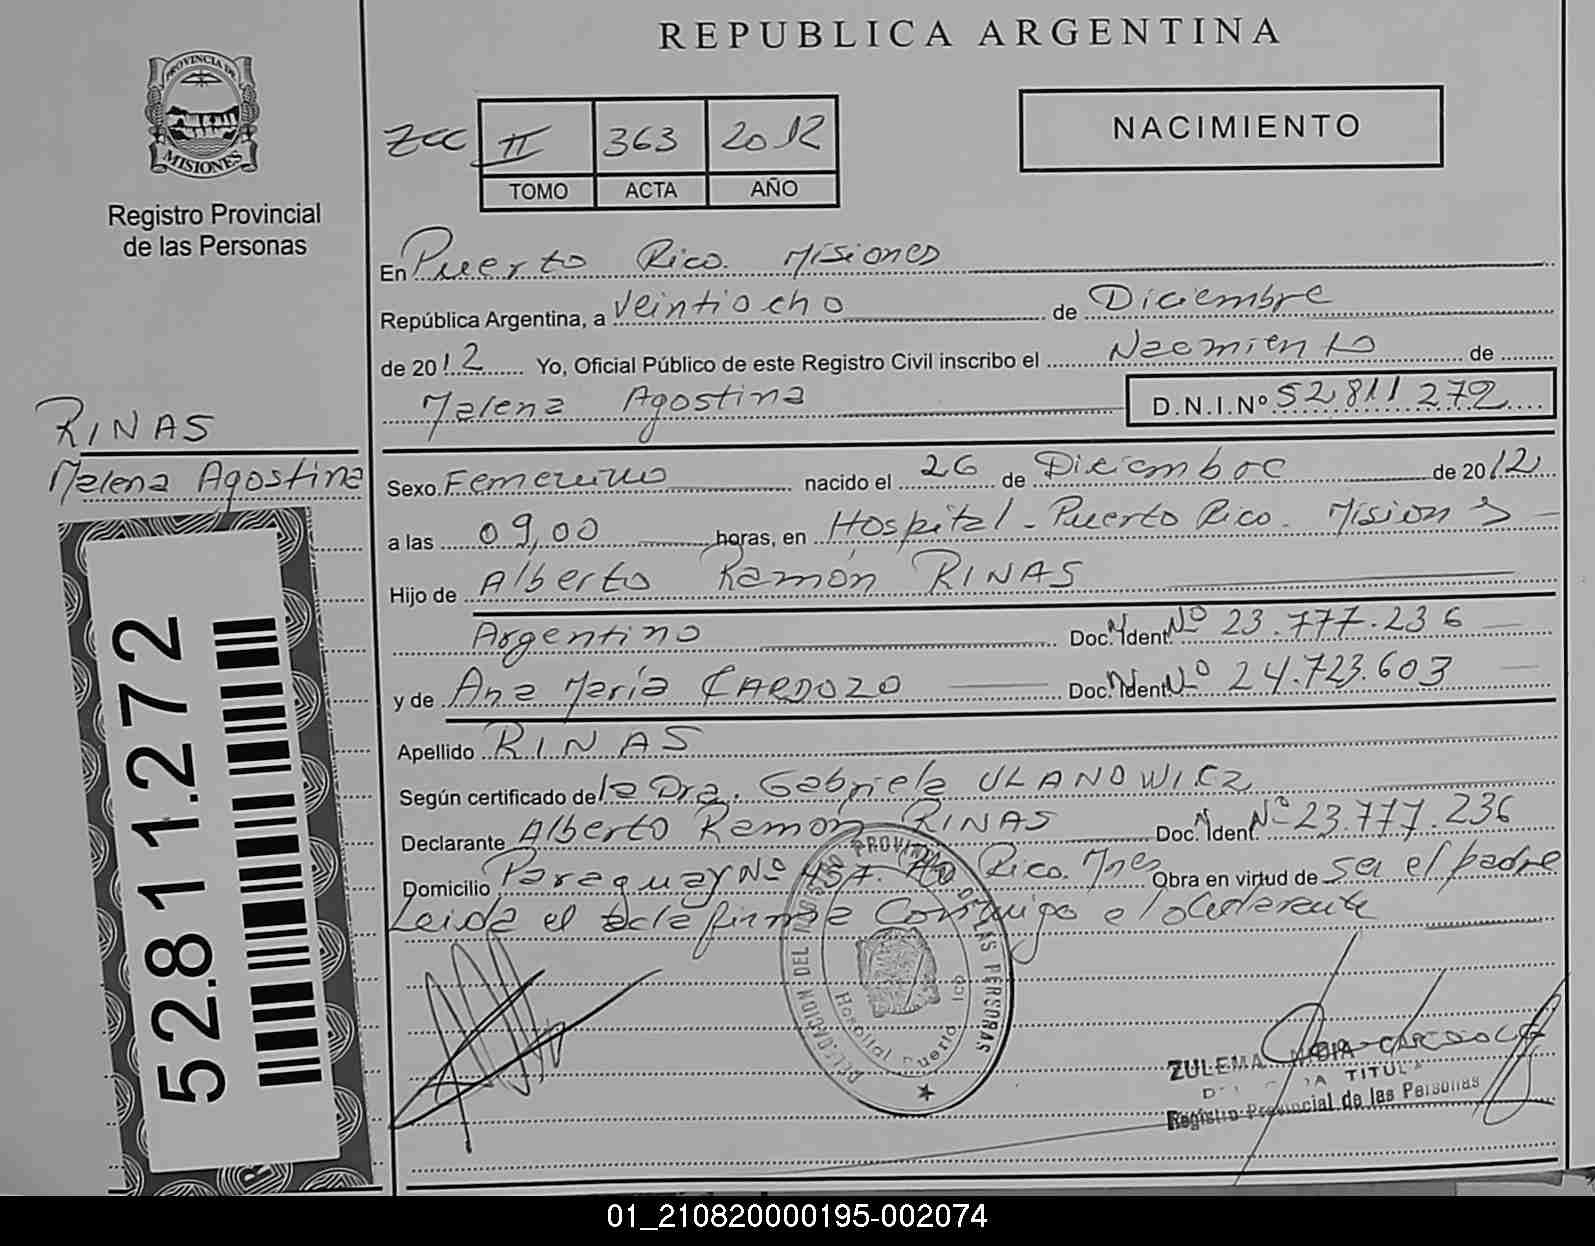 REPUBLICA ARGENTINA
PROVINCIA DE
MISIONES
Registro Provincial
de las Personas
NACIMIENTO
II 363 2012
TOMO ACTA AÑO
En Puerto Rico. Misiones
República Argentina, a Veintiocho de Diciembre
de 2012 Yo, Oficial Público de este Registro Civil inscribo el Nacimiento de
Malena Agostina D.N.I.Nº 52 811 272
RINAS
Malena Agostina
52.811.272
Sexo Femenino nacido el 26 de Diciembre de 2012
a las 09,00 horas, en Hospital - Puerto Rico. Misiones
Hijo de Alberto Ramón RINAS
Argentino Doc. Ident. Nº 23.777.236
y de Ana María CARDOZO Doc. Ident. Nº 24.723.603
Apellido RINAS
Según certificado de la Dra. Gabriela ULANOWICZ
Declarante Alberto Ramón RINAS Doc. Ident. Nº 23.777.236
Domicilio Paraguay Nº 457. Pto Rico. Mnes Obra en virtud de ser el padre
Leida el acta firma Conmigo el declarante
DELEGACION DEL REGISTRO PROVINCIAL DE LAS PERSONAS
Hospital Puerto Rico
ZULEMA
TITULAR
Registro Provincial de las Personas
01_210820000195-002074